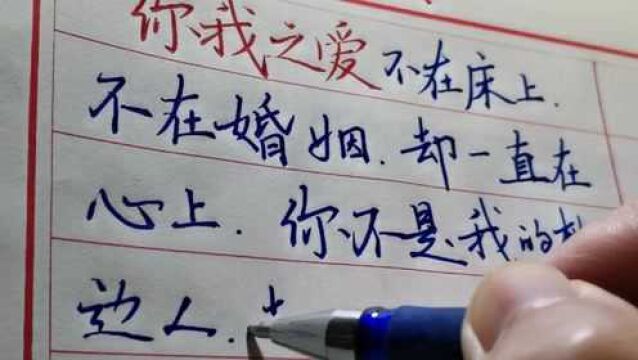 你我之爱不在床上.
不在婚姻.却一直在
心上.你不是我的
边人.